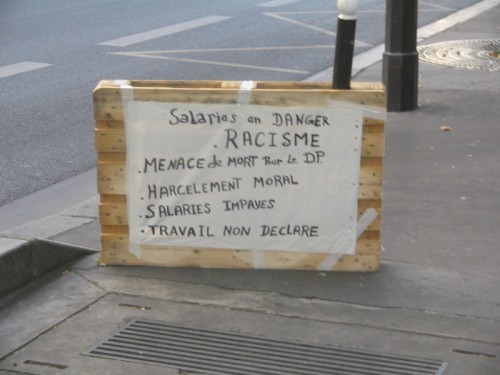 Salaries en DANGER
. RACISME
.MENACE de MORT Pour Le DP.
. HARCELEMENT MORAL
. SALARIES IMPAYES
. TRAVAIL NON DECLARE